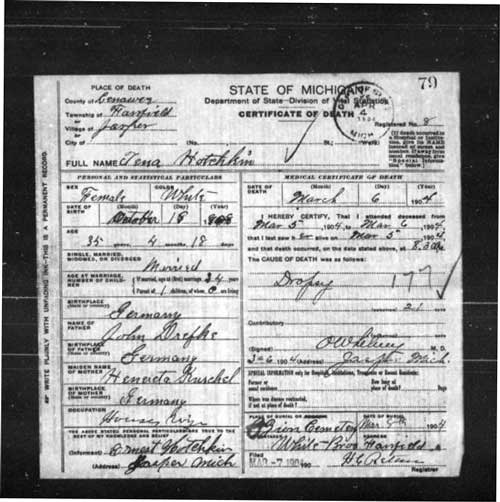 79
PLACE OF DEATH
STATE OF MICHIGAN
County of Lenawee
Department of State—Division of Vital Statistics
Township of Fairfield
CERTIFICATE OF DEATH
Village of Jasper
Registered No. 8
City of (No. St.; Ward)
[If death occurred in a Hospital or Institution, give its NAME instead of street and number. If away from usual residence, give "Special Information" below.]
FULL NAME Tena Hotchkin
PERSONAL AND STATISTICAL PARTICULARS
SEX Female
COLOR White
DATE OF BIRTH (Month) (Day) (Year)
October 18
AGE
35 years, 4 months 18 days
SINGLE, MARRIED, WIDOWED, OR DIVORCED Married
AGE AT MARRIAGE, NUMBER OF CHILDREN
If married, age at (first) marriage 34 years
Parent of 1 children, of whom 0 are living
BIRTHPLACE (State or country) Germany
NAME OF FATHER John
BIRTHPLACE OF FATHER (State or country) Germany
MAIDEN NAME OF MOTHER
BIRTHPLACE OF MOTHER (State or country) Germany
OCCUPATION
THE ABOVE STATED PERSONAL PARTICULARS ARE TRUE TO THE BEST OF MY KNOWLEDGE AND BELIEF
(Informant) Ernest Hotchkin
(Address) Jasper Mich
MEDICAL CERTIFICATE OF DEATH
DATE OF DEATH (Month) (Day) (Year)
March 6 1904
I HEREBY CERTIFY, That I attended deceased from
Mar 5 1904, to Mar 6 1904
that I last saw her alive on Mar 5 1904
and that death occurred, on the date stated above, at 8.30
The CAUSE OF DEATH was as follows:
Dropsy
177
Contributory
(Signed) M. D.
3-6 1904 (Address) Jasper Mich.
SPECIAL INFORMATION only for Hospitals, Institutions, Transients, or Recent Residents:
Former or usual residence
How long at place of death? Days
Where was disease contracted, if not at place of death?
PLACE OF BURIAL OR REMOVAL
DATE OF BURIAL
Cemetery Mar 8th 1904
UNDERTAKER
White Bros Fairfield
Filed MAR -7 1904
Registrar
WRITE PLAINLY WITH UNFADING INK—THIS IS A PERMANENT RECORD